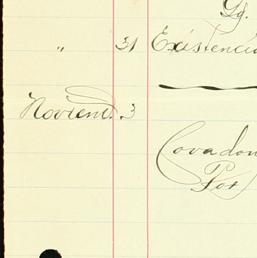 Lg.
" 31 Existencia
Noviem. 3
Covadon
Por